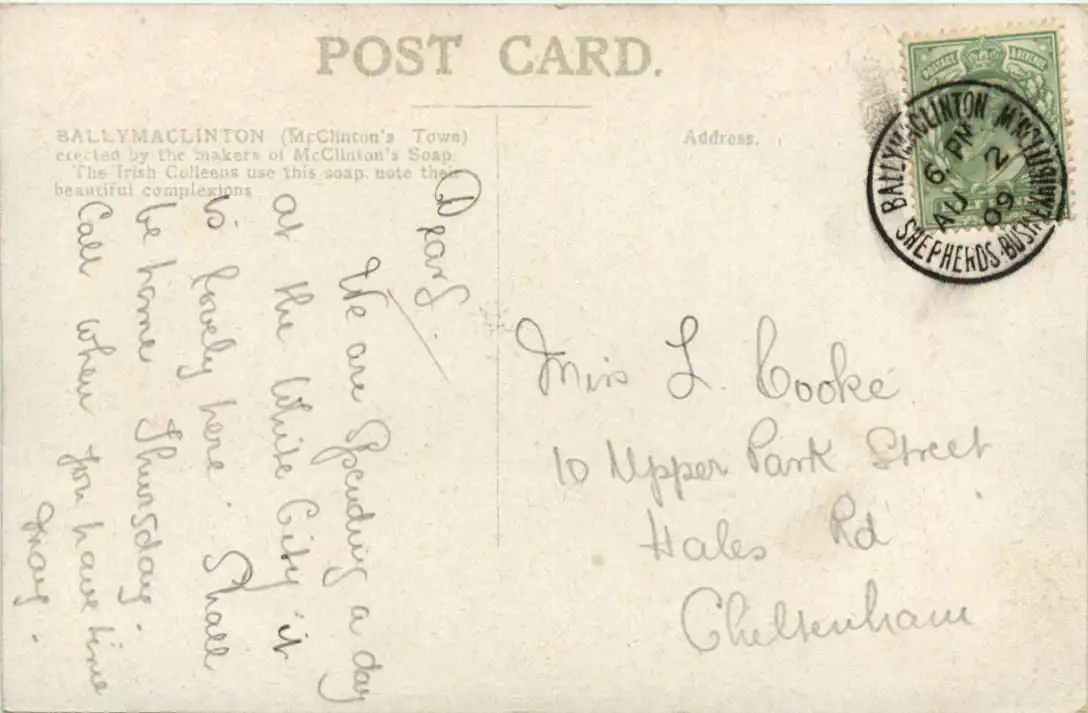 POST CARD.
BALLYMACLINTON (McClinton's Town)
erected by the makers of McClinton's Soap
The Irish Colleens use this soap, note their
beautiful complexions
Address.
POSTAGE
BALLYMACLINTON
6 PM
AU 2
09
SHEPHERDS BUSH EXHIBITION
Dear L.
We are Spending a day
at the White City it
is lovely here. Shall
be home Thursday.
Call when you have time
May.
Miss L. Cooke
10 Upper Park Street
Hales Rd
Cheltenham